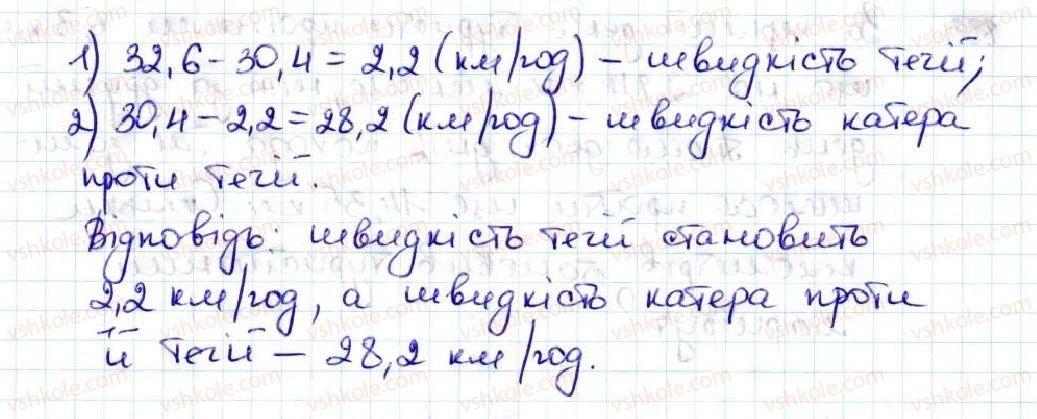 1) 32,6 - 30,4 = 2,2 (км/год) - швидкість течії;
2) 30,4 - 2,2 = 28,2 (км/год) - швидкість катера
проти течії.
Відповідь: швидкість течії становить
2,2 км/год, а швидкість катера проти
її течії - 28,2 км/год.